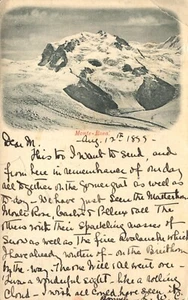 Monte-Rosa.
Aug. 13th 1899
Dear M.
This too I want to send, and
from here in remembrance of our day
all together on the Gornergrat as well as
to-day - We have just seen the Matterhorn
Monte Rosa, Castor & Pollux & all the
others with their sparkling masses of
snow as well as the fine Avalanche which
I have already written of - on the Breithorn
by the way - The one Will & all went
was a wonderful sight - like a rolling
cloud - I wish all could have seen it.